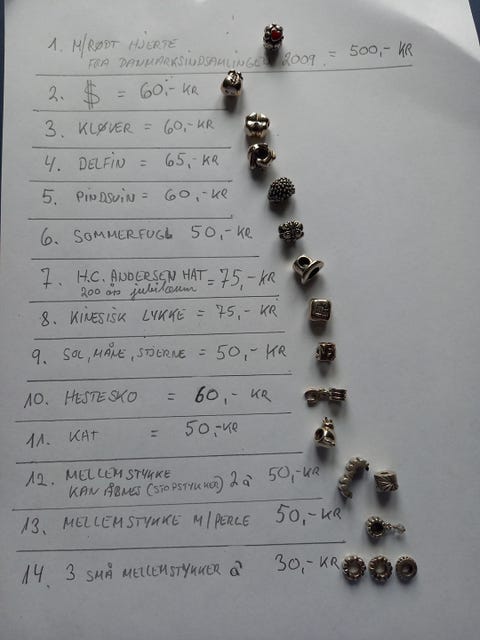 1. M/RØDT HJERTE
FRA DANMARKSINDSAMLINGEN 2009 = 500,- KR
2. $ = 60,- KR
3. KLØVER = 60,- KR
4. DELFIN = 65,- KR
5. PINDSVIN = 60,- KR
6. SOMMERFUGL 50,- KR
7. H.C. ANDERSEN HAT = 75,- KR
200 års jubilæum
8. KINESISK LYKKE = 75,- KR
9. SOL, MÅNE, STJERNE = 50,- KR
10. HESTESKO = 60,- KR
11. KAT = 50,- KR
12. MELLEMSTYKKE
KAN ÅBNES (STOPSTYKKER) 2 á 50,- KR
13. MELLEMSTYKKE M/PERLE 50,- KR
14. 3 SMÅ MELLEMSTYKKER á 30,- KR